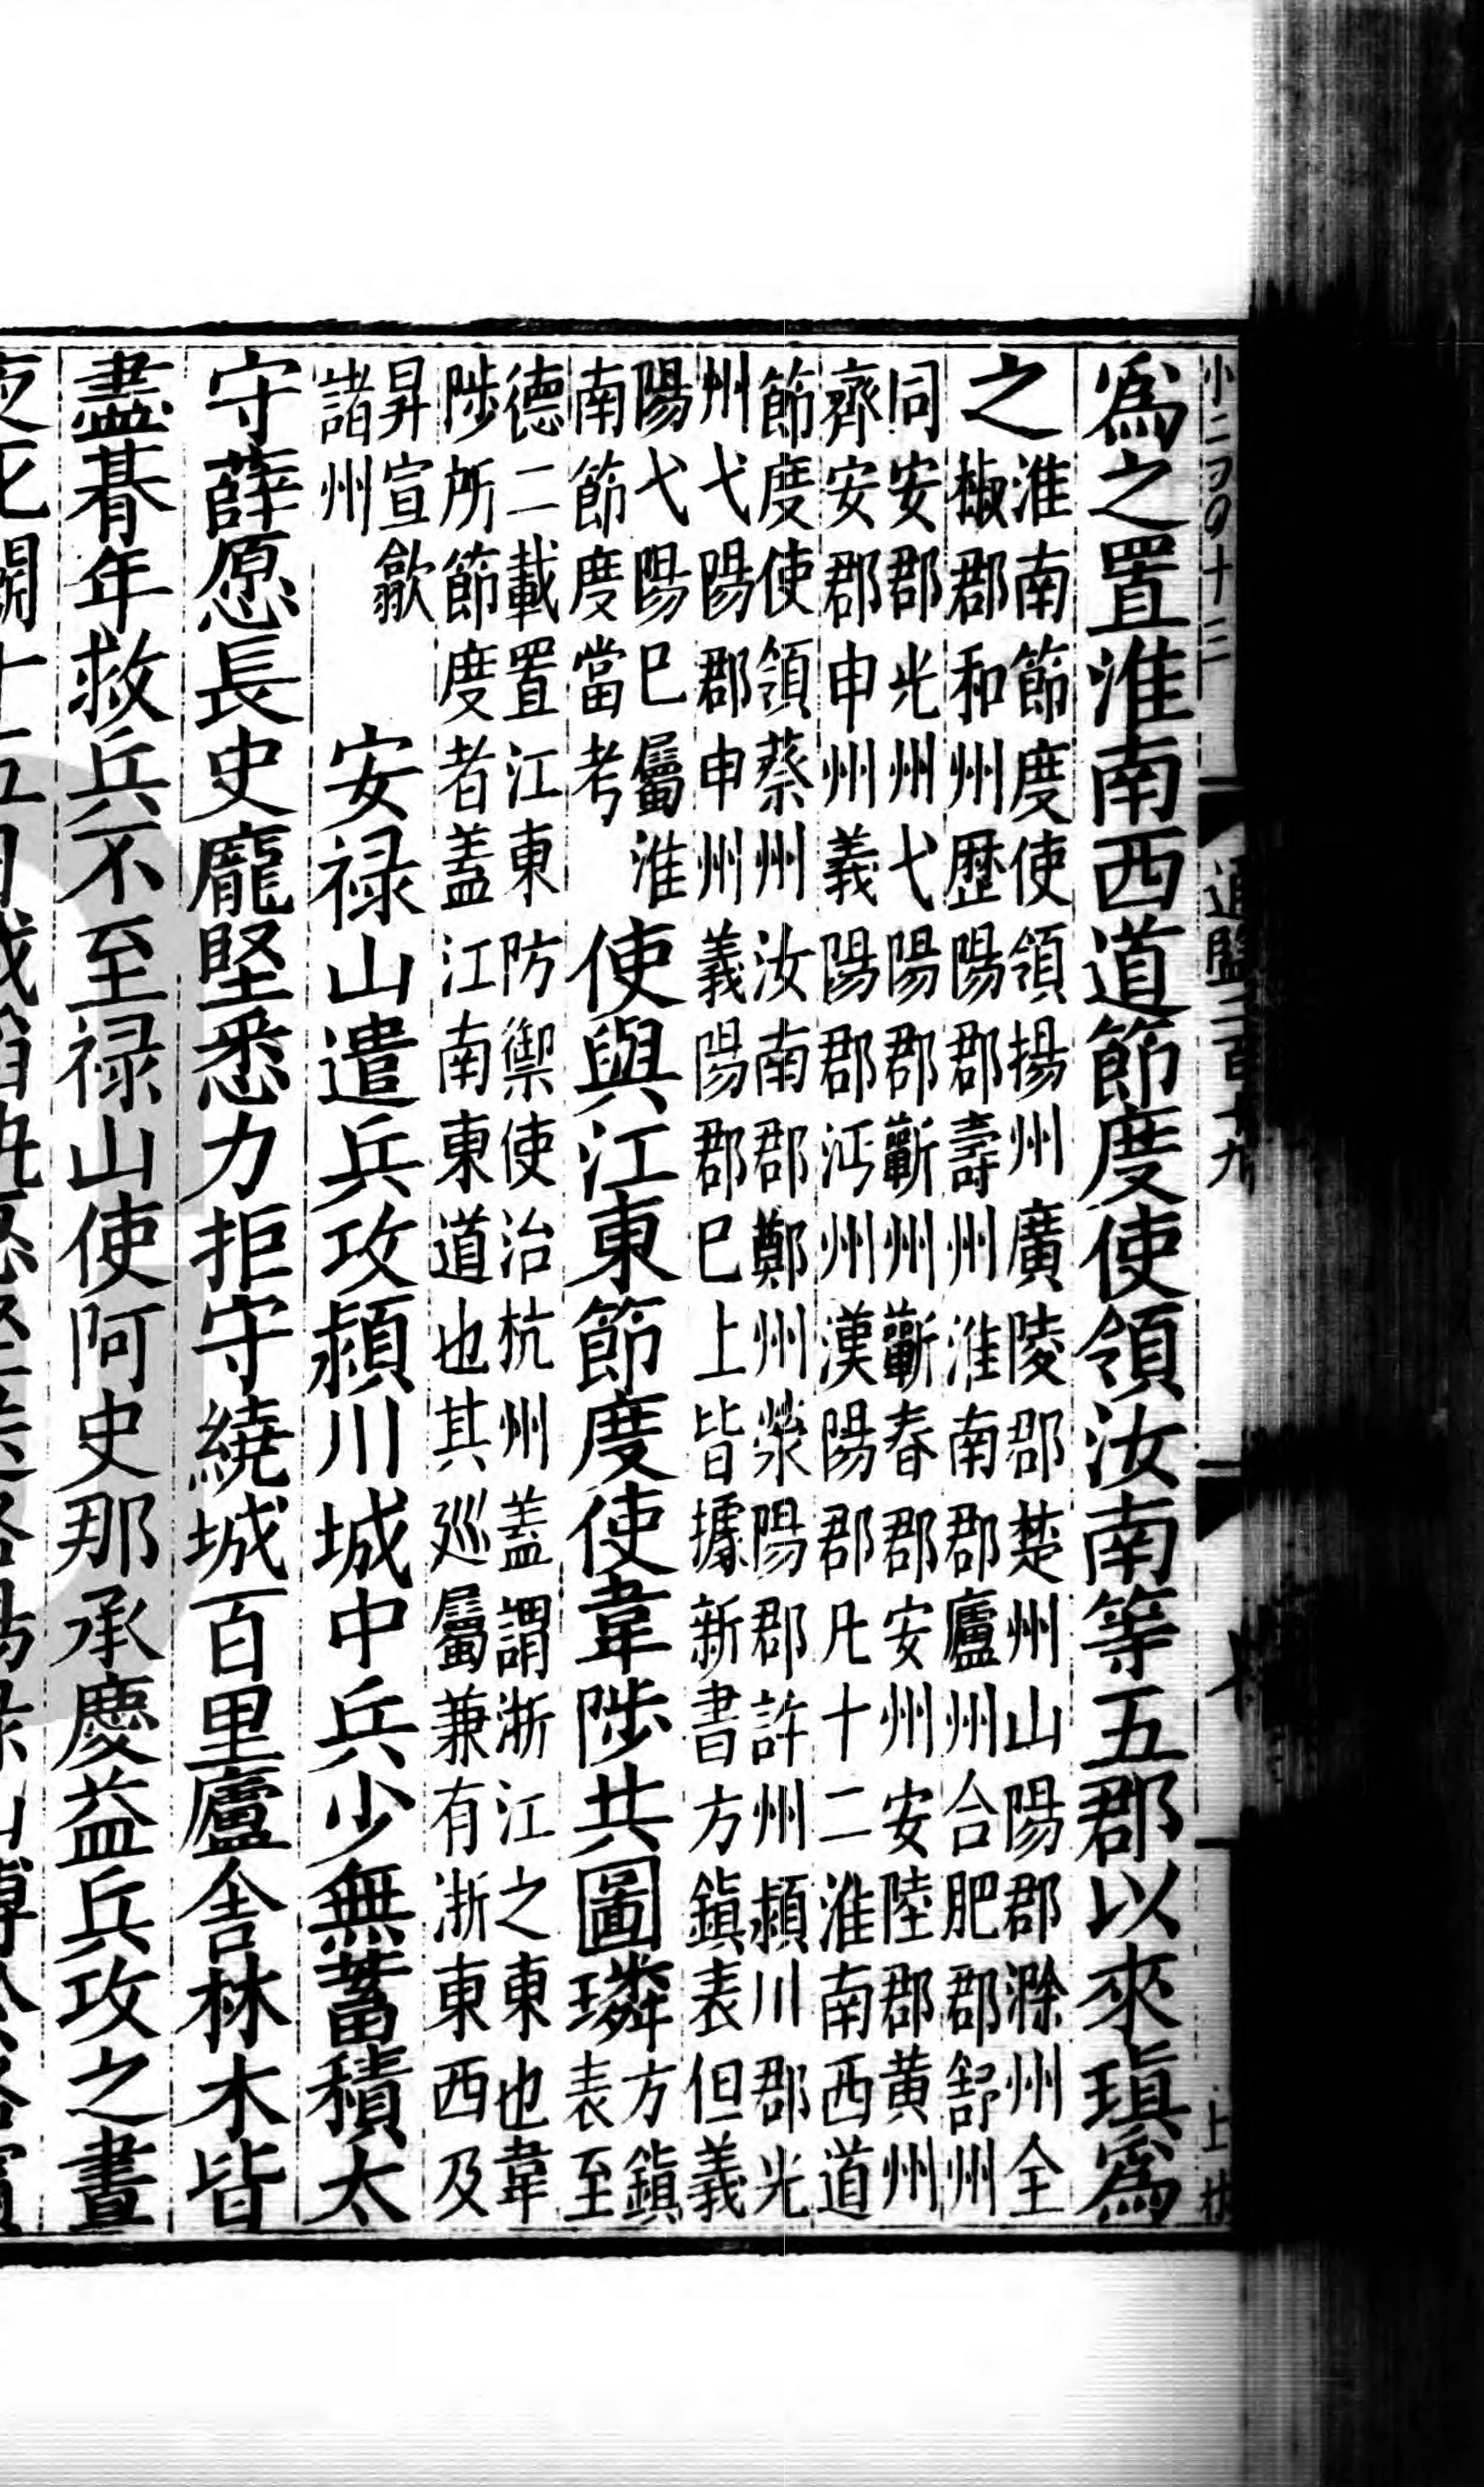 通鑑二百十九
爲之置淮南西道節度使領汝南等五郡以來瑱爲
之
淮南節度使領揚州廣陵郡楚州山陽郡滁州全
椒郡和州歷陽郡壽州淮南郡廬州合肥郡舒州
同安郡光州弋陽郡蘄州蘄春郡安州安陸郡黃州
齊安郡申州義陽郡沔州漢陽郡凡十二淮南西道
節度使領蔡州汝南郡鄭州滎陽郡許州潁川郡光
州弋陽郡申州義陽郡巳上皆據新書方鎭表但義
陽弋陽巳屬淮
南節度當考
使與江東節度使韋陟共圖璘
方鎭
表至
德二載置江東防禦使治杭州蓋謂浙江之東也韋
陟所節度者蓋江南東道也其廵屬兼有浙東西及
昇宣歙
諸州
安禄山遣兵攻潁川城中兵少無蓄積太
守薛愿長史龐堅悉力拒守繞城百里廬舍林木皆
盡朞年救兵不至禄山使阿史那承慶益兵攻之晝